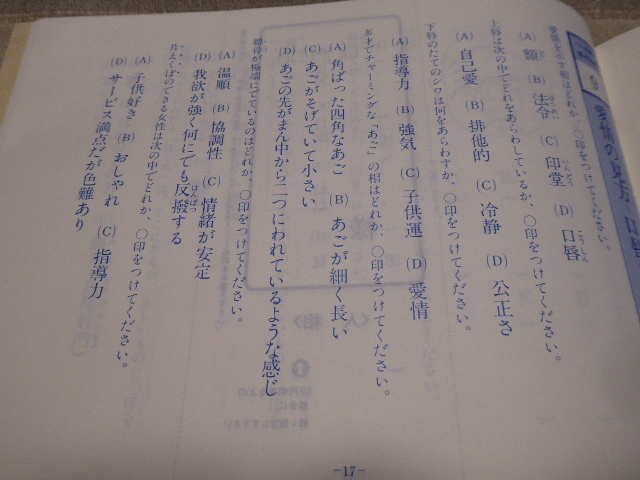 愛情を示す相はどれか、〇印をつけてください。
(A) 額 (B) 法令 (C) 印堂 (D) 口唇
上唇は次の中でどれをあらわしているか、〇印をつけてください。
(A) 自己愛 (B) 排他的 (C) 冷静 (D) 公正さ
下唇のたてのシワは何をあらわすか、〇印をつけてください。
(A) 指導力 (B) 強気 (C) 子供運 (D) 愛情
多才でチャーミングな「あご」の相はどれか、〇印をつけてください。
(A) 角ばった四角なあご (B) あごが細く長い
(C) あごがそげていて小さい
(D) あごの先がまん中から二つにわれているような感じ
腮骨が極端にでているのはどれか、〇印をつけてください。
(A) 温順 (B) 協調性 (C) 情緒が安定
(D) 我欲が強く何にでも反撥する
片えくぼのできる女性は次の中でどれか、〇印をつけてください。
(A) 子供好き (B) おしゃれ (C) 指導力
(D) サービス満点だが色難あり
-17-